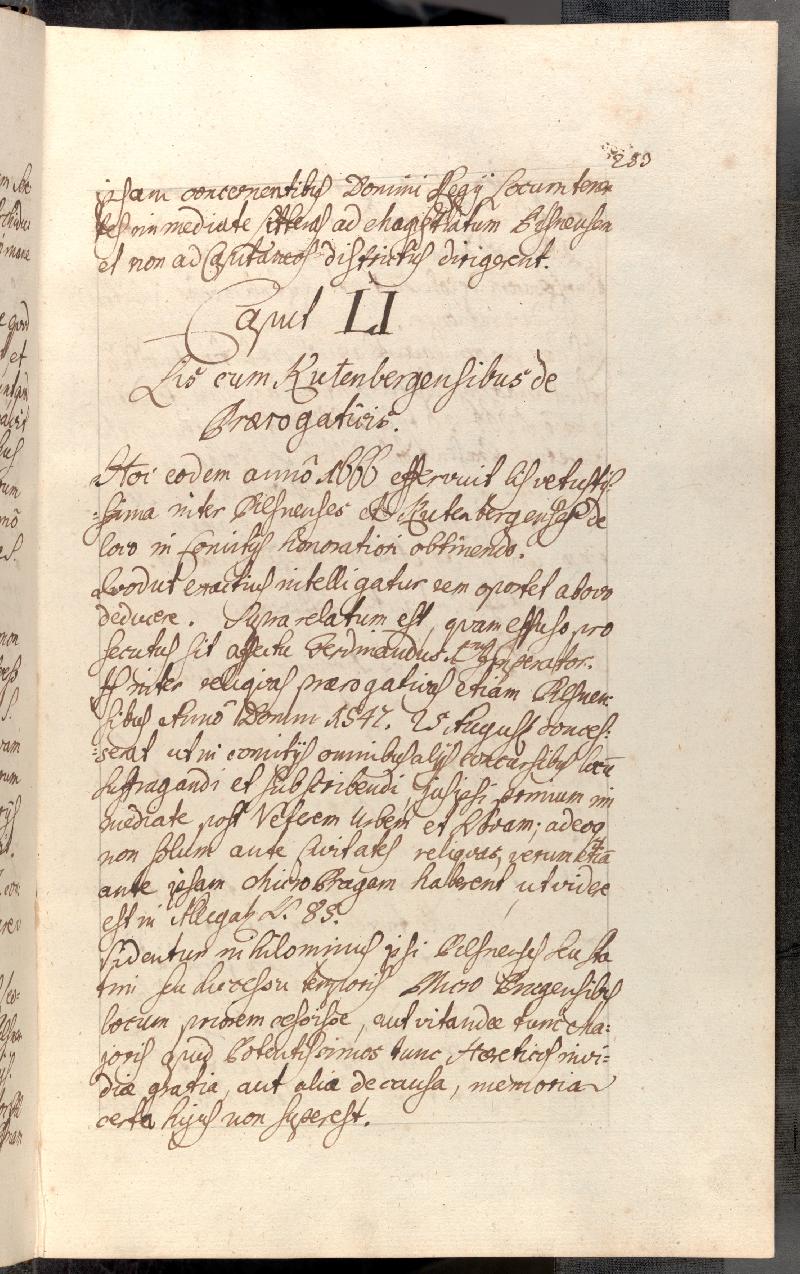 283
ipsam concernentibus Domini Regij Locumtenen
tes immediate litteras ad Magistratum Pilsnensem
et non ad Capitaneos districtus dirigerent.
Caput LI
Lis cum Kutenbergensibus de
Prærogativis.
Hoc eodem annô 1666 efferviit lis vetustis
sima inter Pilsnenses et Kutenbergenses de
loco in Comitijs honoratiori obtinendo.
Quod ut exactius intelligatur rem oportet ab ovo
deducere. Supra relatum est, quam effuso pro
secutus sit affectu Ferdinandus Imperator.
Is inter reliquas prærogativas etiam Pilsnen
sibus Annô Domini 1547. 25 Augusti conces:
:serat ut in comitijs omnibus alijs concursibus locū
suffragandi et subscribendi jus ipsi primum im
mediate post Veterem Urbem et Novam; adeoq
non solum ante Civitates reliquas, verum etiā
ante ipsam Micro Pragam haberent, ut videre
est in Allegat L. 85.
Videntur nihilominus ipsi Pilsnenses seu sta
tim seu successu temporis Micro Pragensibus
locum priorem cessisse, aut vitandæ tunc ma:
joris apud Potentissimos tunc Hæreticos invi:
diæ gratia, aut alia de causa, memoria
certa hujus non superest.